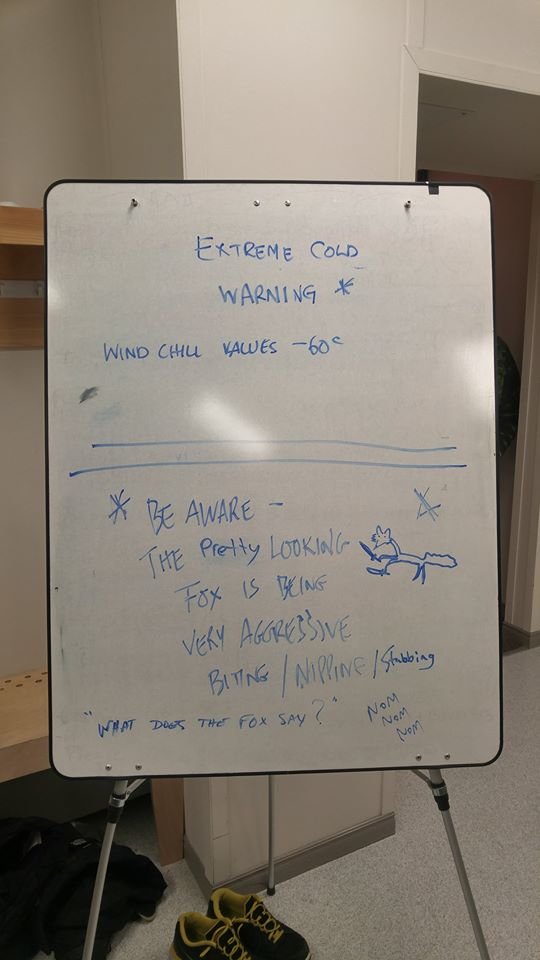 EXTREME COLD
WARNING *
WIND CHILL VALUES -60°
* BE AWARE -
THE Pretty LOOKING
FOX IS BEING
VERY AGGRESSIVE
BITING / NIPPING / Stabbing
"WHAT DOES THE FOX SAY?"
NOM
NOM
NOM